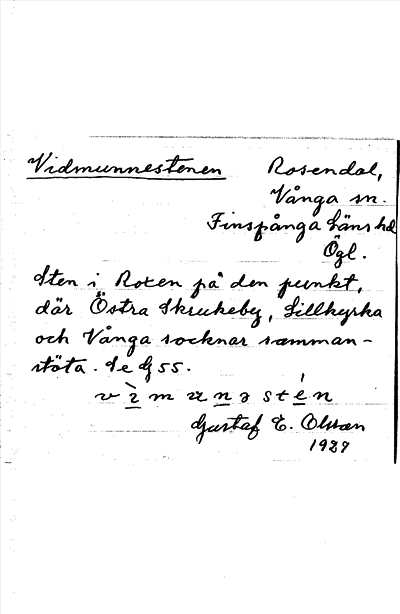 Vidmunnestenen Rosendal,
Vånga sn.
Finspånga läns hd
Ögl.
Sten i Roxen på den punkt,
där Östra Skrukeby, Lillkyrka
och Vånga socknar samman-
stöta. Se G 55.
v ì m u n ə s t é n
Gustaf E. Olsson
1927